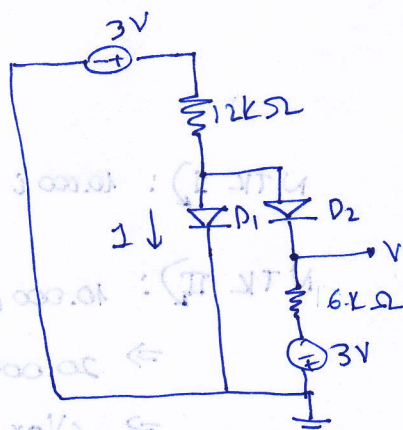 3V
- +
12KΩ
1 ↓
D1
D2
V
6KΩ
+
3V